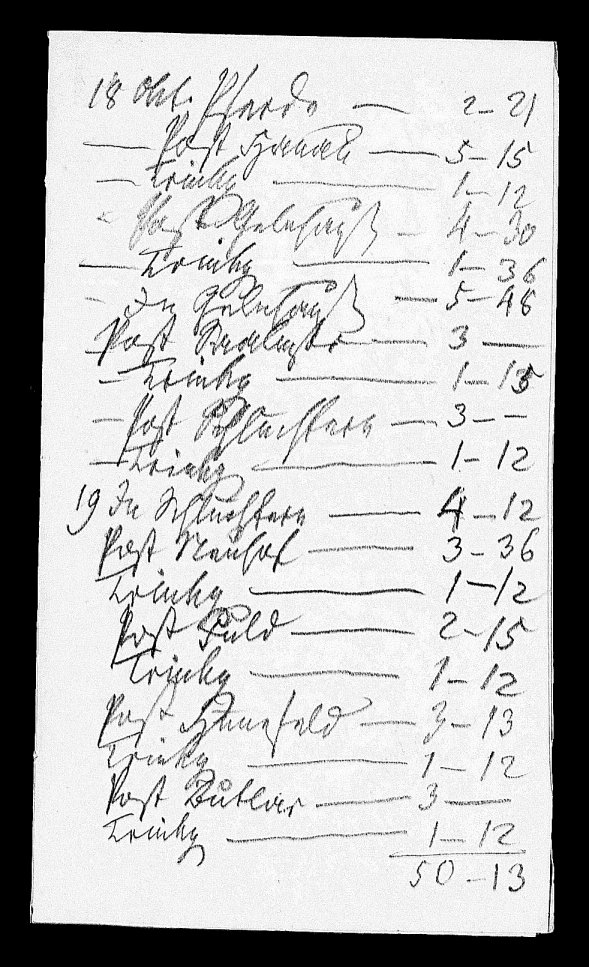 18 Okt. Pferde — 2 – 21
— Post Hanau — 5 – 15
— Trinkg — 1 – 12
– Post Gelnhauß – 4 – 30
— Trinkg — 1 – 36
– In Gelnhauß — 5 – 48
– Post Saalmster — 3 —
– Trinkg — 1 – 15
– Post Schluchtern — 3 – –
– Trinkg — 1 – 12
19 In Schluchtern — 4 – 12
Post Neuhof — 3 – 36
Trinkg — 1 – 12
Post Fuld — 2 – 15
Trinkg — 1 – 12
Post Hunefeld — 3 – 13
Trinkg — 1 – 12
Post Butlar — 3 —
Trinkg — 1 – 12
50 – 13